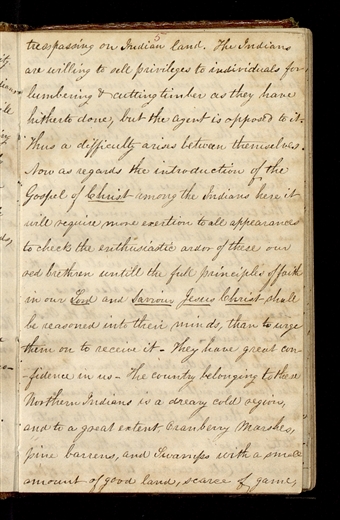 5
trespassing on Indian land. The Indians
are willing to sell privileges to individuals for
lumbering & cutting timber as they have
hitherto done, but the agent is opposed to it-
Thus a difficulty arises between themselves.
Now as regards the introduction of the
Gospel of Christ among the Indians here it
will require more exertion to all appearances
to check the enthusiastic ardor of these our
red brethren untill the full principles of faith
in our Lord and Saviour Jesus Christ shall
be reasoned into their minds, than to urge
them on to receive it - They have great con-
-fidence in us - The country belonging to these
Northern Indians is a dreary cold region,
and to a great extent Cranberry Marshes,
pine barrens, and Swamps with a small
amount of good land, scarce of game,